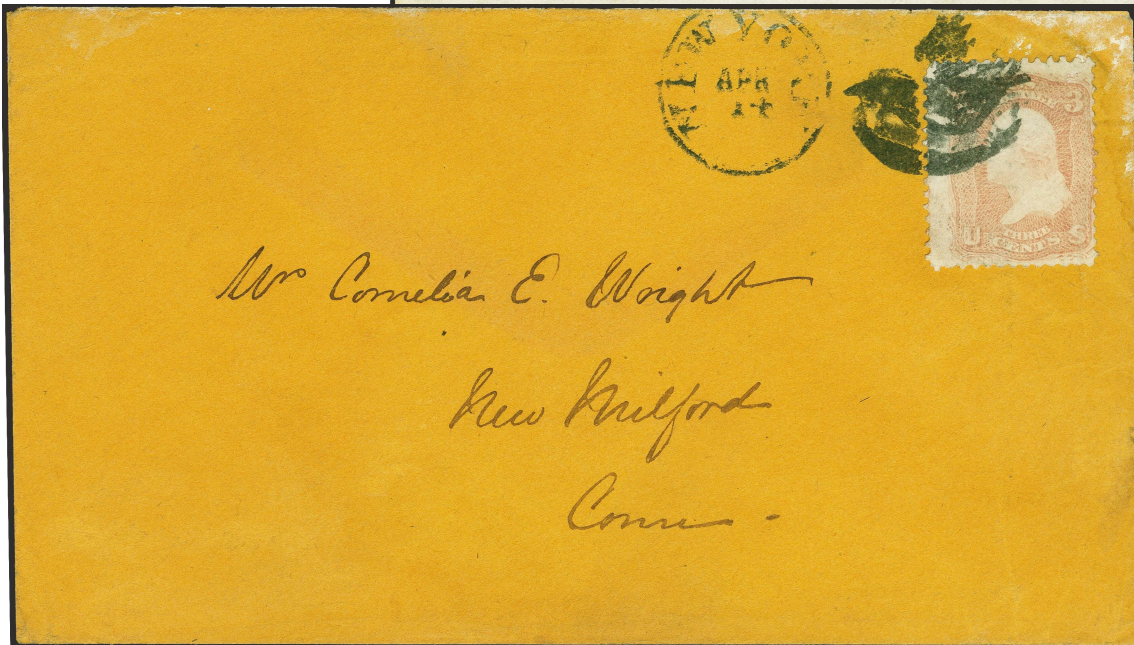 NEW YORK
APR
14
3
U S
THREE
CENTS
Mrs Cornelia E. Wright
New Milford
Conn -